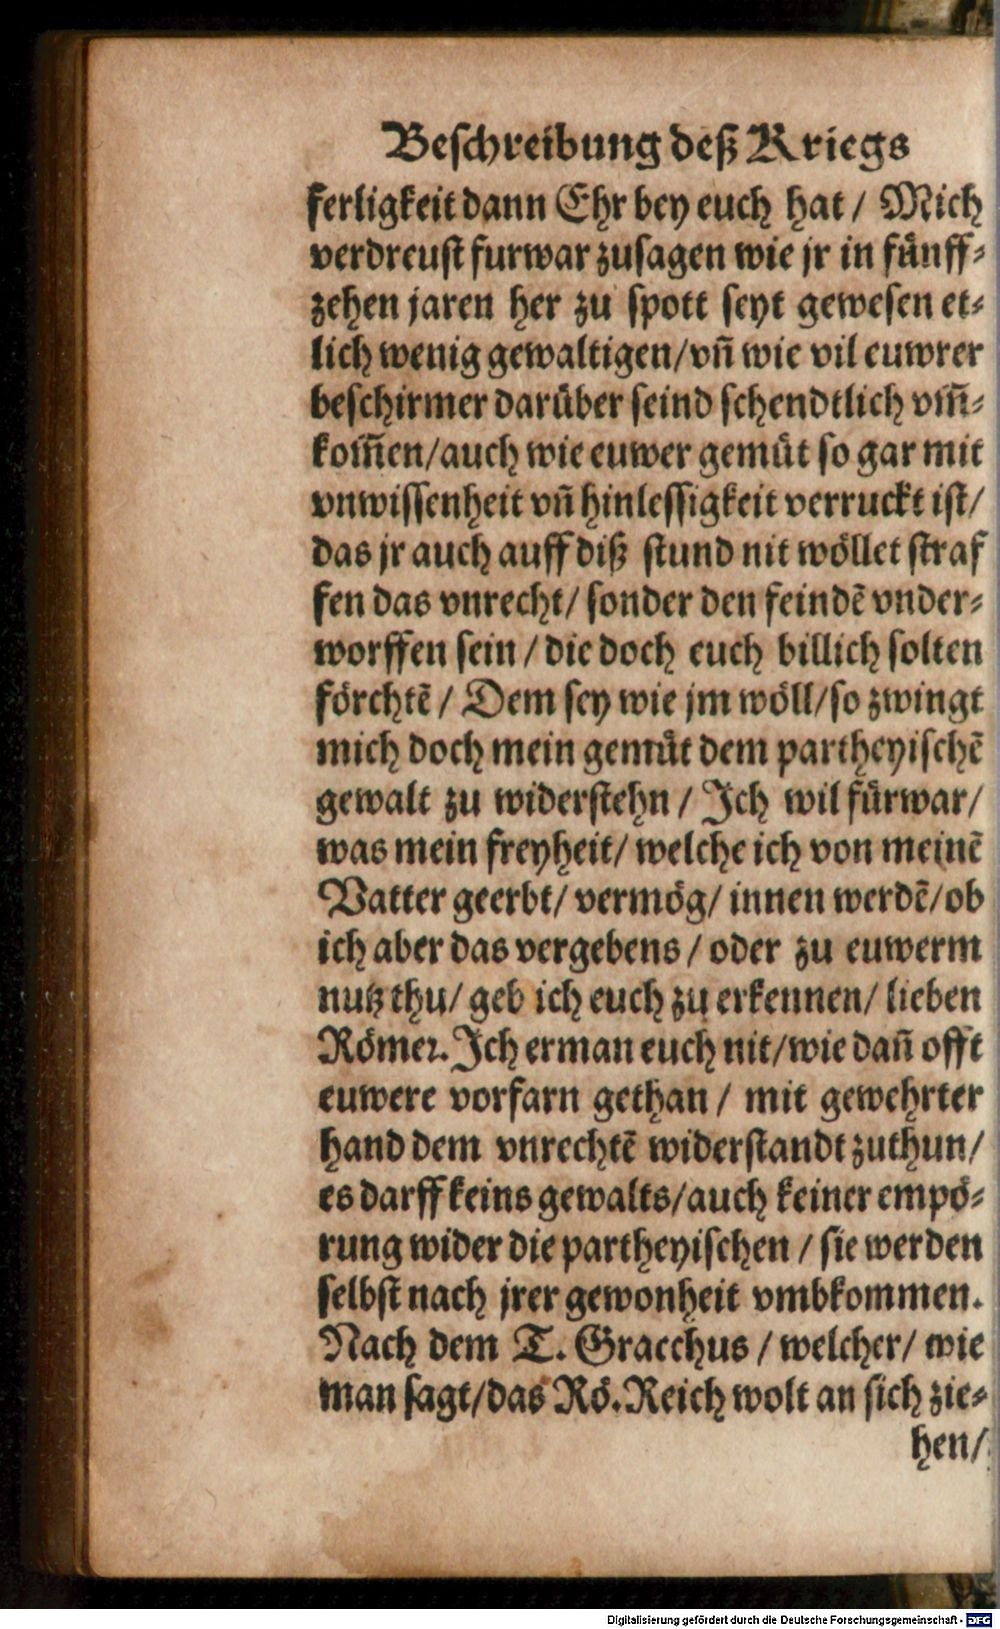 Beschreibung deß Kriegs
ferligkeit dann Ehr bey euch hat / Mich
verdreust furwar zusagen wie jr in fünff⸗
zehen jaren her zu spott seyt gewesen et⸗
lich wenig gewaltigen/vñ wie vil euwrer
beschirmer darüber seind schendtlich vm̃⸗
kom̃en/auch wie euwer gemüt so gar mit
vnwissenheit vñ hinlessigkeit verruckt ist/
das jr auch auff diß stund nit wöllet straf
fen das vnrecht/ sonder den feindẽ vnder⸗
worffen sein / die doch euch billich solten
förchtẽ / Dem sey wie jm wöll/so zwingt
mich doch mein gemüt dem partheyischẽ
gewalt zu widerstehn / Jch wil fürwar/
was mein freyheit/ welche ich von meinẽ
Vatter geerbt/ vermög/ innen werdẽ/ob
ich aber das vergebens / oder zu euwerm
nutz thu/ geb ich euch zu erkennen/ lieben
Römer. Jch erman euch nit/wie dañ offt
euwere vorfarn gethan / mit gewehrter
hand dem vnrechtẽ widerstandt zuthun/
es darff keins gewalts/auch keiner empö⸗
rung wider die partheyischen / sie werden
selbst nach jrer gewonheit vmbkommen.
Nach dem T. Gracchus / welcher/ wie
man sagt/das Rö. Reich wolt an sich zie⸗
hen/
Digitalisierung gefördert durch die Deutsche Forschungsgemeinschaft - DFG